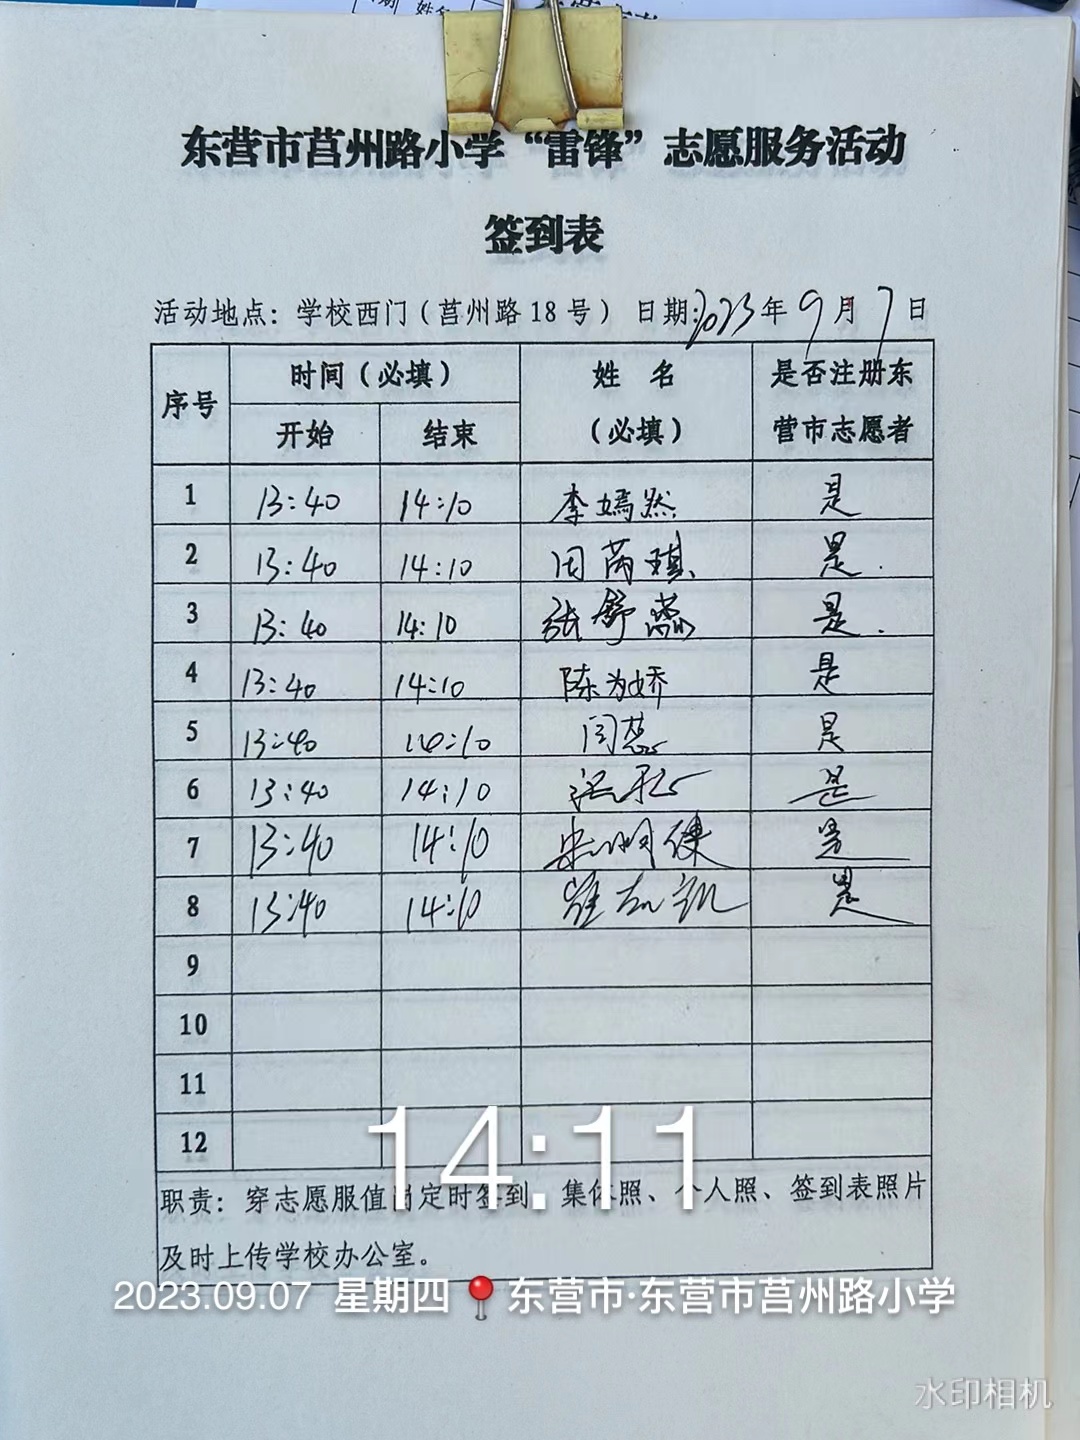 东营市莒州路小学“雷锋”志愿服务活动
签到表
活动地点：学校西门（莒州路18号） 日期：2023年9月7日
序号 时间（必填） 姓 名（必填） 是否注册东营市志愿者
开始 结束
1 13:40 14:10 李嫣然 是
2 13:40 14:10 周芮琪 是.
3 13:40 14:10 张舒蕊 是.
4 13:40 14:10 陈为娇 是
5 13:40 14:10 闫蕊 是
6 13:40 14:10 是
7 13:40 14:10 宋明健 是
8 13:40 14:10 是
9
10
11
12
14:11
职责：穿志愿服值岗定时签到、集体照、个人照、签到表照片
及时上传学校办公室。
2023.09.07 星期四 东营市·东营市莒州路小学
水印相机